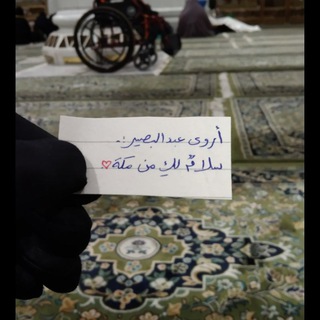 أروى عبدالبصير..
سلامٌ لكِ من مكة♡